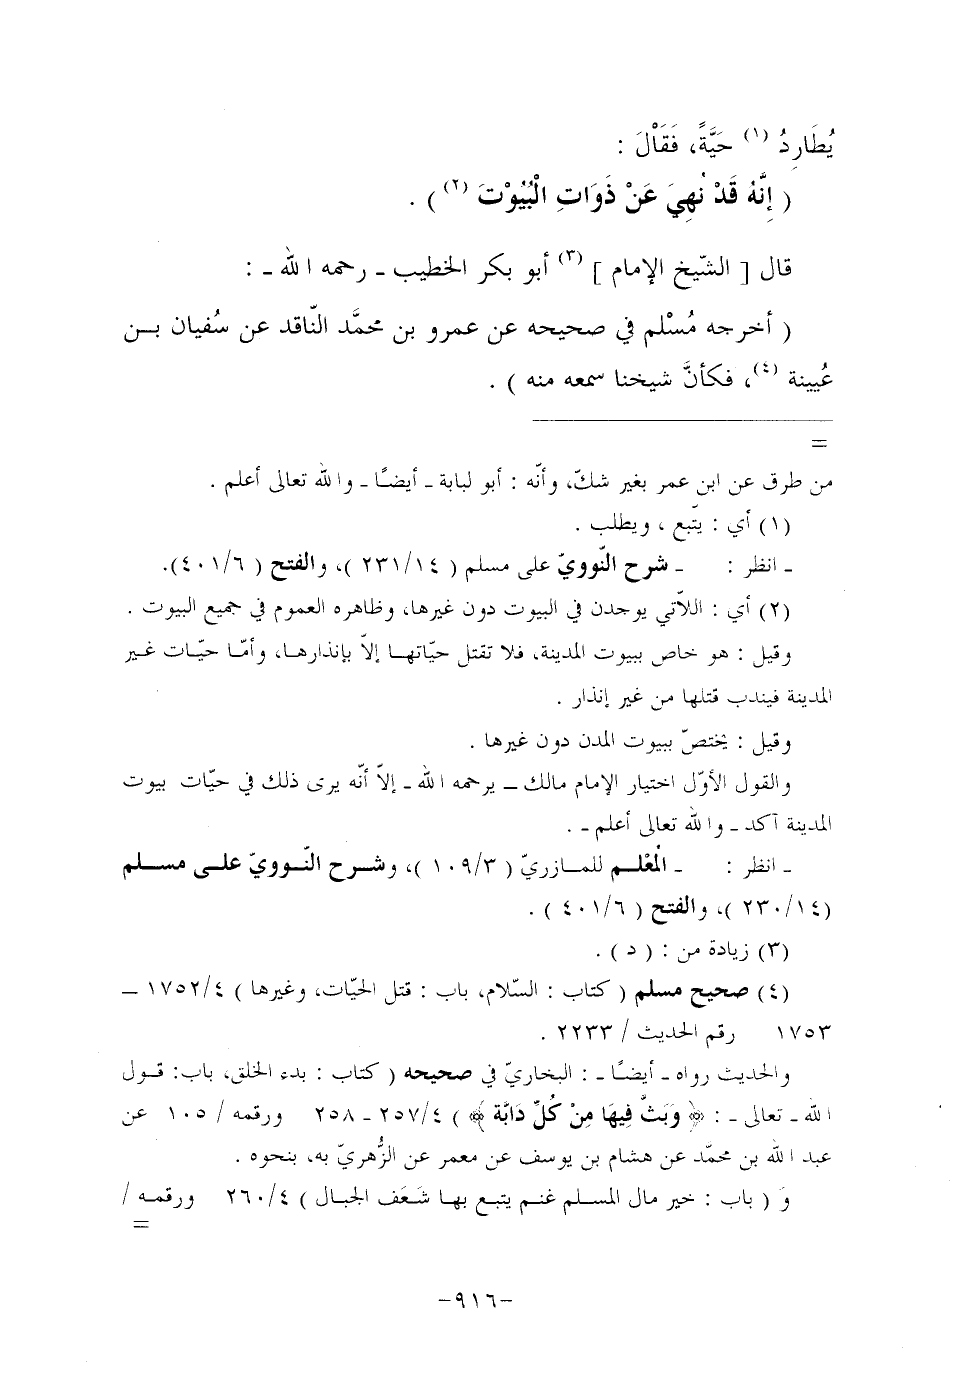 يُطَارِدُ (١) حَيَّةً، فَقَاْلَ :
( إِنَّهُ قَدْ نُهِيَ عَنْ ذَوَاتِ الْبُيُوْتَ (٢) ) .
قال [ الشّيخ الإمام ] (٣) أبو بكر الخطيب ـ رحمه الله ـ :
( أخرجه مُسْلم في صحيحه عن عمرو بن محمَّد النّاقد عن سُفيان بـــن
عُيينة (٤)، فكأنَّ شيخنا سمعه منه ) .
=
من طرق عن ابن عمر بغير شكّ، وأنّه : أبو لبابة ـ أيضًا ـ والله تعالى أعلم .
(١) أي : يتّبع ، ويطلب .
ـ انظر : ـ شرح النّوويّ على مسلم ( ٢٣١/١٤ )، والفتح ( ٤٠١/٦).
(٢) أي : اللاّتي يوجدن في البيوت دون غيرها، وظاهره العموم في جميع البيوت .
وقيل : هو خاص ببيوت المدينة، فلا تقتل حيّاتهـا إلاّ بإنذارهـا، وأمّـا حيّـات غـير
المدينة فيندب قتلها من غير إنذار .
وقيل : يختصّ ببيوت المدن دون غيرها .
والقول الأوّل اختيار الإمام مالك ــ يرحمه الله ـ إلاّ أنّه يرى ذلك في حيّات بيوت
المدينة آكد ـ والله تعالى أعلم ـ .
ـ انظر : ـ المُعْلـم للمـازريّ ( ١٠٩/٣ )، وشـرح النّـوويّ علـى مسـلم
(٢٣٠/١٤ )، والفتح ( ٤٠١/٦ ) .
(٣) زيادة من : ( د ) .
(٤) صحيح مسلم ( كتاب : السّلام، باب : قتل الحيّات، وغيرها ) ١٧٥٢/٤ ــ
١٧٥٣ رقم الحديث / ٢٢٣٣ .
والحديث رواه ـ أيضًـا ـ : البخاريّ في صحيحه ( كتاب : بدء الخلق، باب: قـول
الله ـ تعالى ـ : ﴿ وَبَثَّ فِيهَا مِنْ كُلِّ دَابَّة ﴾ ) ٢٥٧/٤ ـ ٢٥٨ ورقمه / ١٠٥ عن
عبد الله بن محمّد عن هشام بن يوسف عن معمر عن الزُّهريّ به، بنحوه .
وَ ( باب : خير مال المسـلم غنـم يتبع بهـا شَعَف الجبال ) ٢٦٠/٤ ورقمـه /
=
-٩١٦-